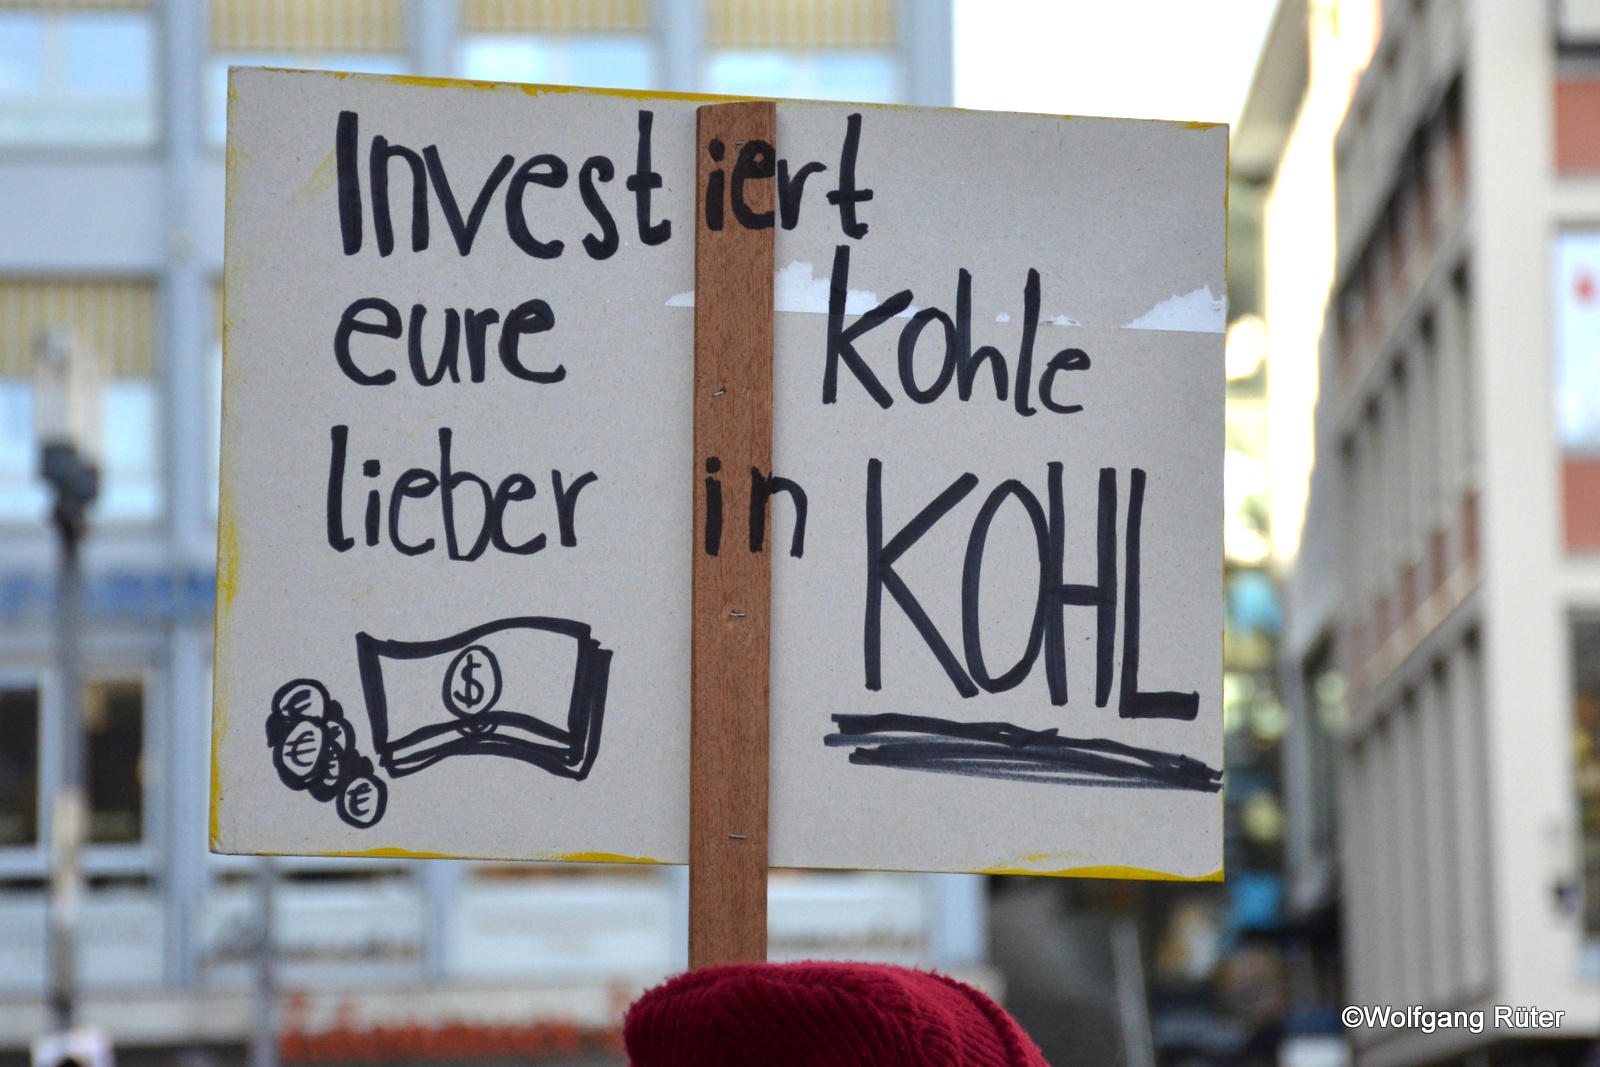 Investiert
eure kohle
lieber in KOHL
$
€
€
€
©Wolfgang Rüter